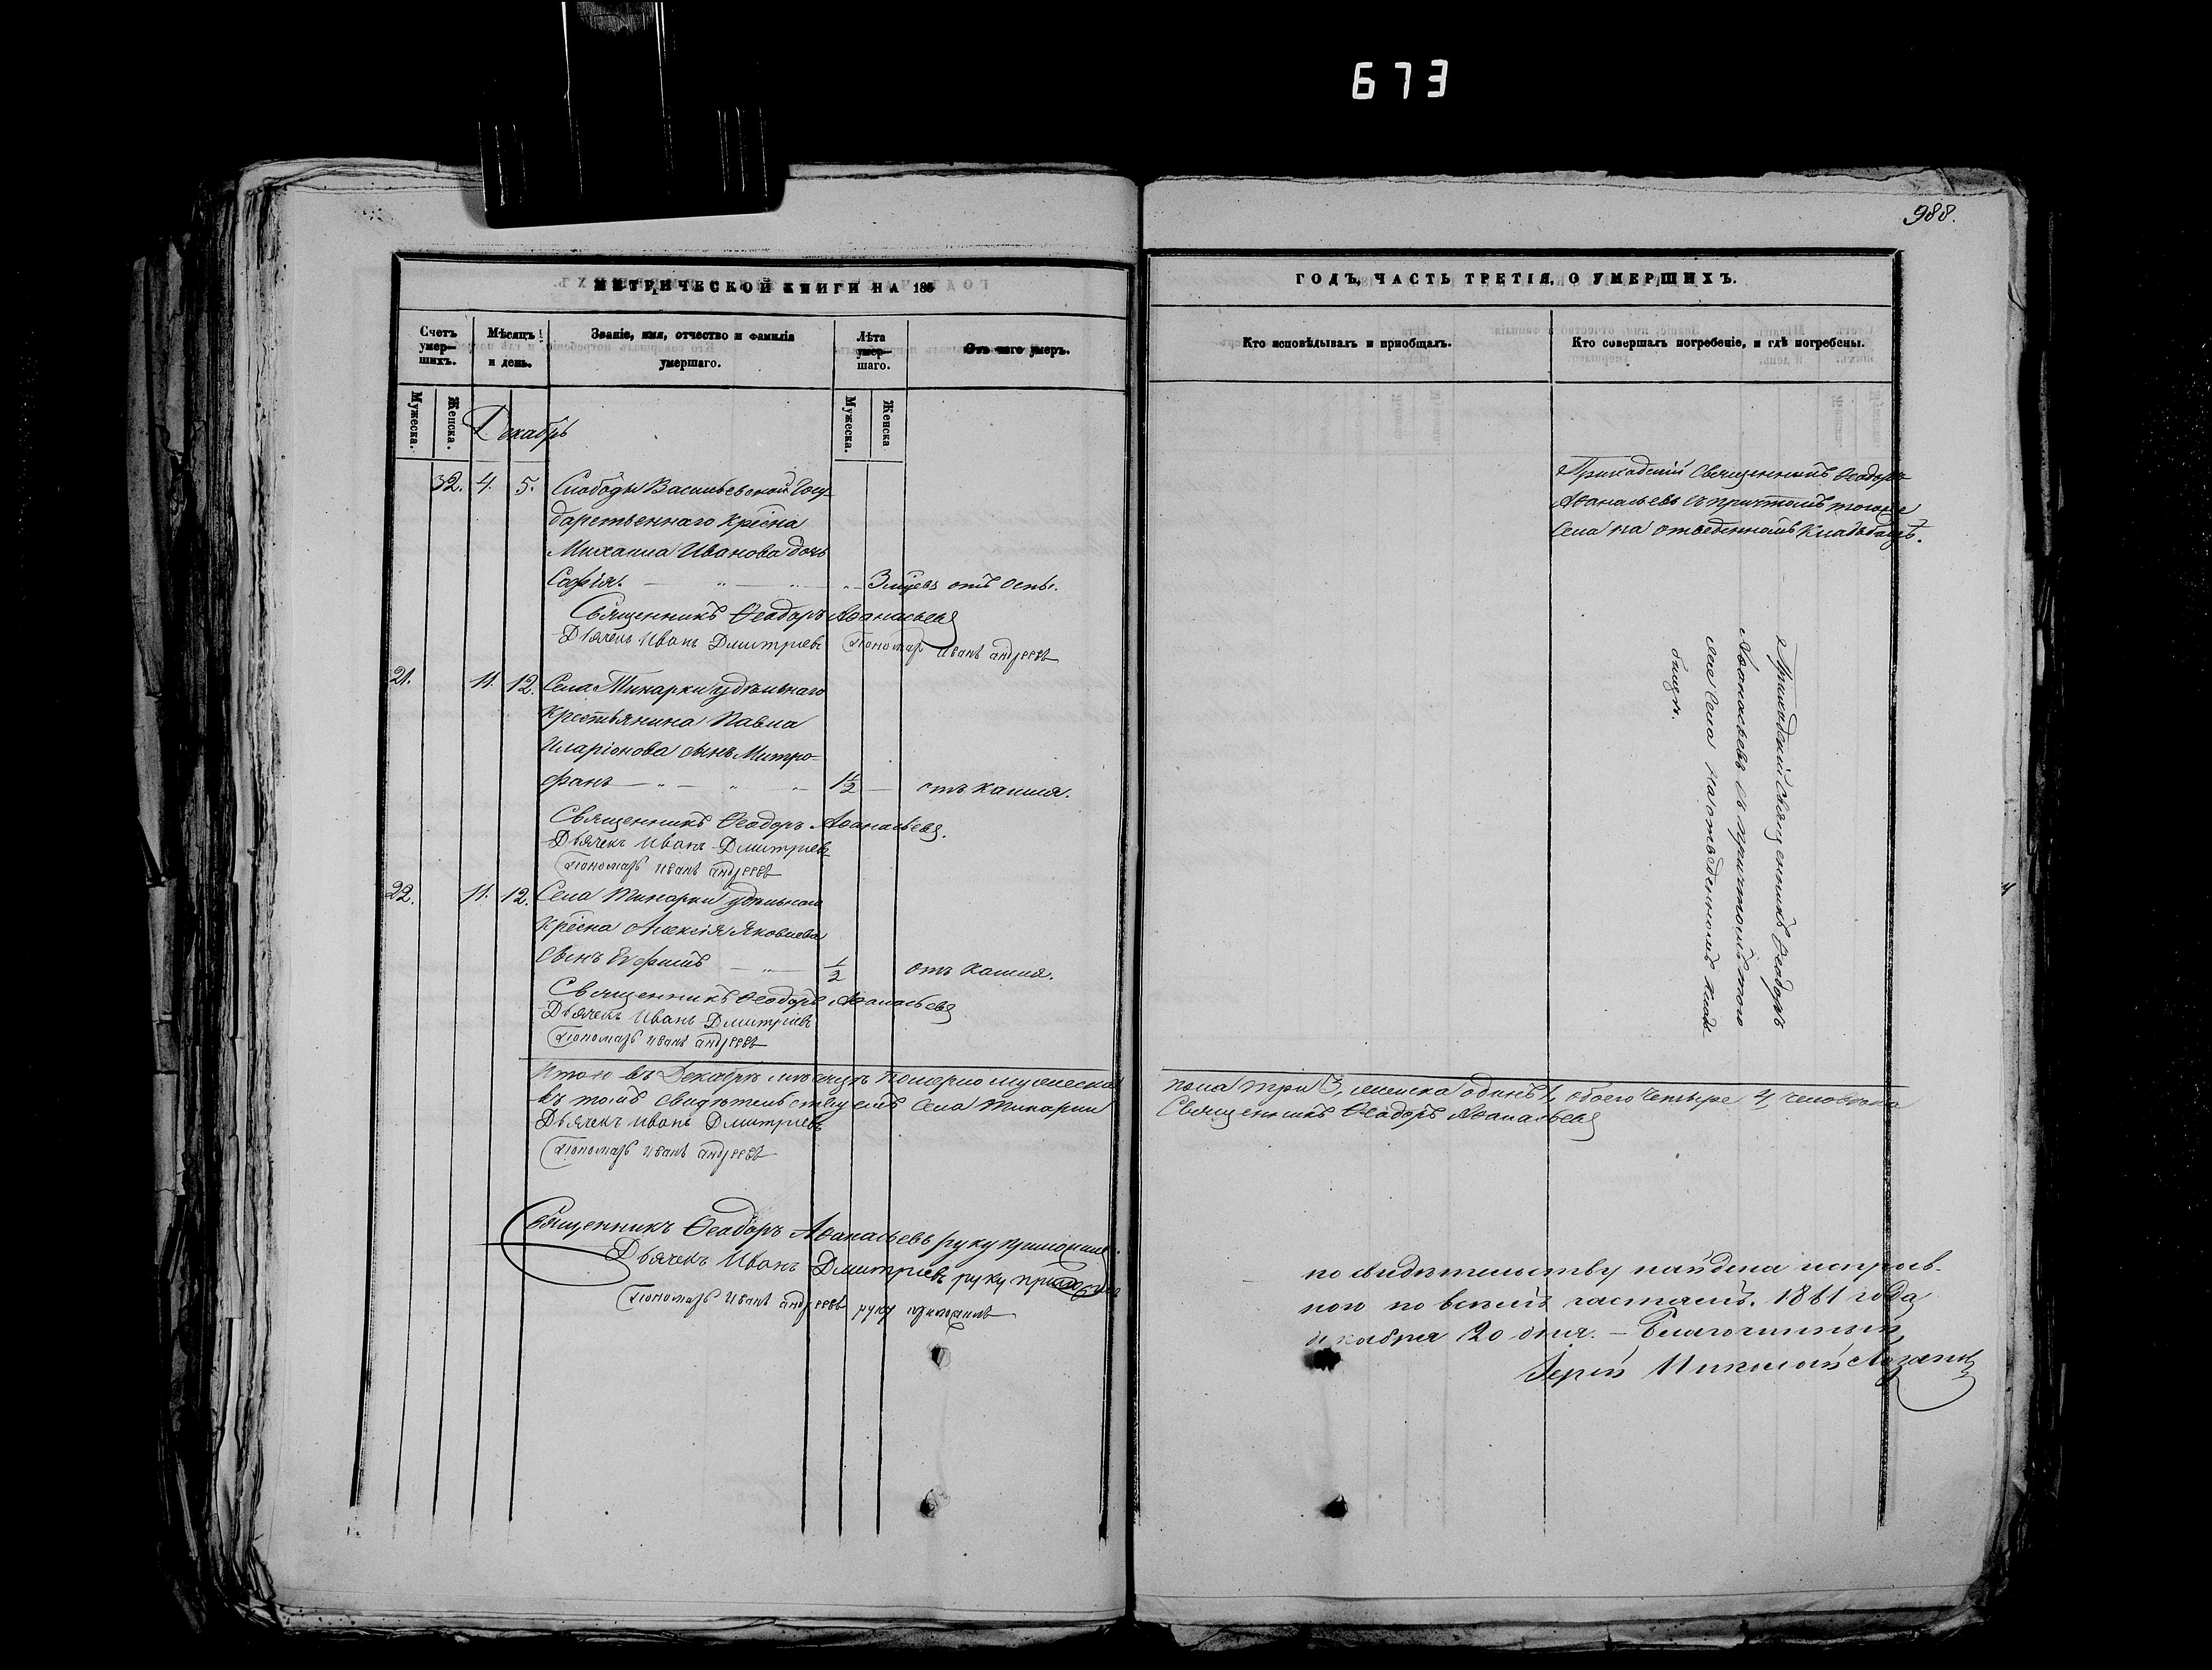 673
988.
МЕТРИЧЕСКОЙ КНИГИ НА 185
Счетъ умер-шихъ.
Мѣсяцъ и день.
Званіе, имя, отчество и фамилія умершаго.
Лѣта умер-шаго.
Отъ чего умеръ.
Мужеска.
Женска.
Мужеска.
Женска
Декабрь
32. 4. 5. Слободы Васильевской Госу-
дарственнаго Крестна
Михаила Иванова дочь
Софія. 3 отъ оспы.
Священникъ Ѳеодоръ Аѳанасьевъ
Дьячекъ Иванъ Дмитріевъ Пономарь Иванъ Андреевъ
21. 11. 12. Села Тинарки удѣльнаго
Крестьянина Павла
Иларіонова сынъ Митро-
фанъ 1½ отъ кашля.
Священникъ Ѳеодоръ Аѳанасьевъ.
Дьячекъ Иванъ Дмитріевъ
Пономарь Иванъ Андреевъ
22. 11. 12. Села Тинарки удѣльнаго
Крестна Алексія Яковлева
сынъ Ефимъ ½ отъ кашля.
Священникъ Ѳеодоръ Аѳанасьевъ
Дьячекъ Иванъ Дмитріевъ
Пономарь Иванъ Андреевъ
Итого въ Декабрѣ мѣсяцѣ померло мужеска
въ томъ свидѣтельствуемъ Села Тинарки
Дьячекъ Иванъ Дмитріевъ
Пономарь Иванъ Андреевъ
Священникъ Ѳеодоръ Аѳанасьевъ руку приложилъ.
Дьячекъ Иванъ Дмитріевъ руку приложилъ
Пономарь Иванъ Андреевъ руку приложилъ
ГОДЪ, ЧАСТЬ ТРЕТІЯ, О УМЕРШИХЪ.
Кто исповѣдывалъ и приобщалъ.
Кто совершалъ погребеніе, и гдѣ погребены.
Приходскій Священникъ Ѳеодоръ
Аѳанасьевъ съ причтомъ тогоже
Села на отведенномъ Кладбищѣ.
Приходскій Священникъ Ѳеодоръ
Аѳанасьевъ съ причтомъ того
же Села на отведенномъ Клад-
бищѣ.
пола три 3, женска одинъ 1, обоего четыре 4 человѣка
Священникъ Ѳеодоръ Аѳанасьевъ
по свидѣтельству найдена исправ-
ною по всемъ частямъ. 1861 года
декабря 20 дня. – Благочинный,
Іерей Николай